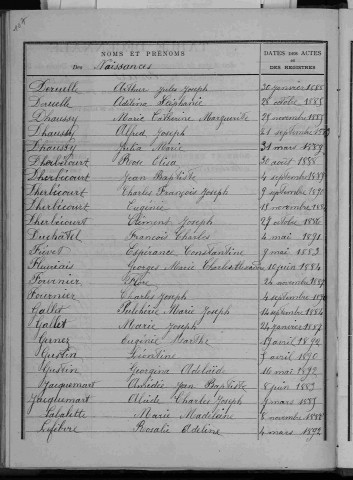 NOMS ET PRÉNOMS
DATES DES ACTES
ET
DES REGISTRES
Des Naissances
Deruelle Arthur Jules Joseph 30 janvier 1888
Druelle Adeline Stéphanie 28 octobre 1885
Dhaussy Marie Catherine Marguerite 28 novembre
Dhaussy Alfred Joseph 21 septembre
Dhaussy Julia Marie 31 mars 1889
Dherlicourt Rose Elisa 30 août 1888
Dherlicourt Jean Baptiste 4 septembre 1889
Dherlicourt Charles François Joseph 9 septembre 1890
Dherlicourt Eugénie 18 novembre
Dherlicourt Clément Joseph 27 octobre 1886
Duchâtel François Charles 4 mai 1891
Frévet Espérance Constantine 9 mai 1883
Fleuriais Georges Marie Charles Alexandre 10 juin 1884
Fournier 24 novembre
Fournier Charles Joseph 4 septembre
Gallet Pulchérie Marie Joseph 14 septembre 1884
Gallet Marie Joseph 24 janvier 1887
Eugénie Marthe 17 avril 1892
Gustin Léontine 7 avril 1890
Gustin Georgina Adelaïde 16 mai 1892
Jacquemart Jean Baptiste 8 juin 1883
Jacquemart Alcide Charles Joseph 9 mars 1885
Lalalette Marie Madelaine 8 novembre 1888
Lefebvre Rosalie Adeline 4 mars 1892